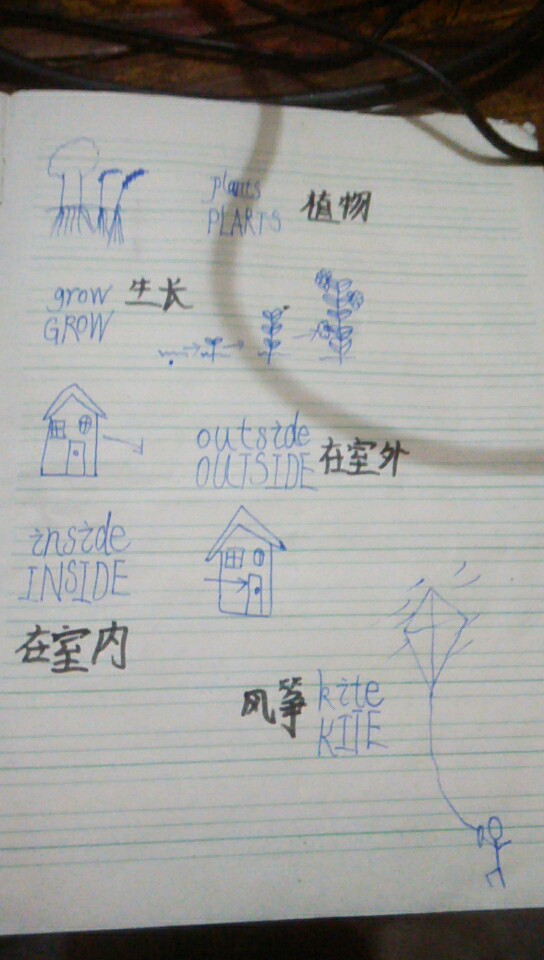 plants
PLARTS 植物
grow 生长
GROW
outside
OUTSIDE 在室外
inside
INSIDE
在室内
风筝 kite
KITE